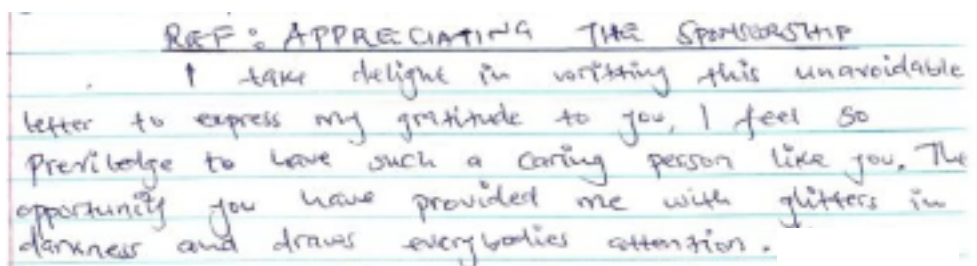 REF: APPRECIATING THE SPONSORSHIP
I take delight in writting this unavoidable
letter to express my gratitude to you, I feel so
Previledge to have such a caring person like you. The
opportunity you have provided me with glitters in
darkness and draws everybodies attention.